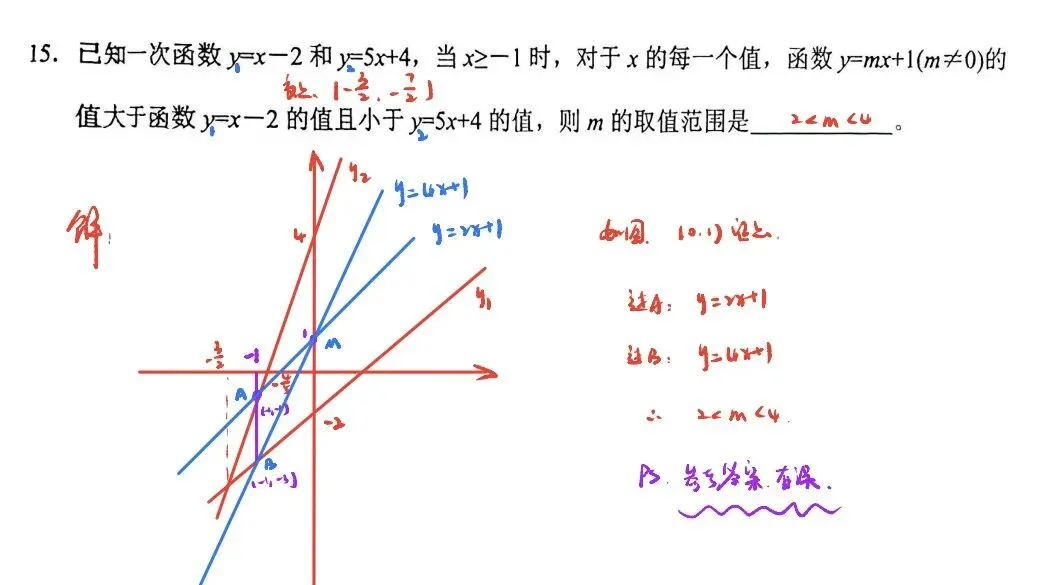 15. 已知一次函数 y=x－2 和 y=5x+4，当 x≥－1 时，对于 x 的每一个值，函数 y=mx+1(m≠0)的
1 2
交点 (-3/2, -7/2)
值大于函数 y=x－2 的值且小于 y=5x+4 的值，则 m 的取值范围是 2<m<4 。
1 2
解:
y2
y=4x+1
y=2x+1
4
y1
如图 (0,1) 定点
过A: y=2x+1
过B: y=4x+1
∴ 2<m<4
PS. 参考答案有误.
1
M
-3/2
-1
-4/5
A
(-1,-1)
-2
B
(-1,-3)